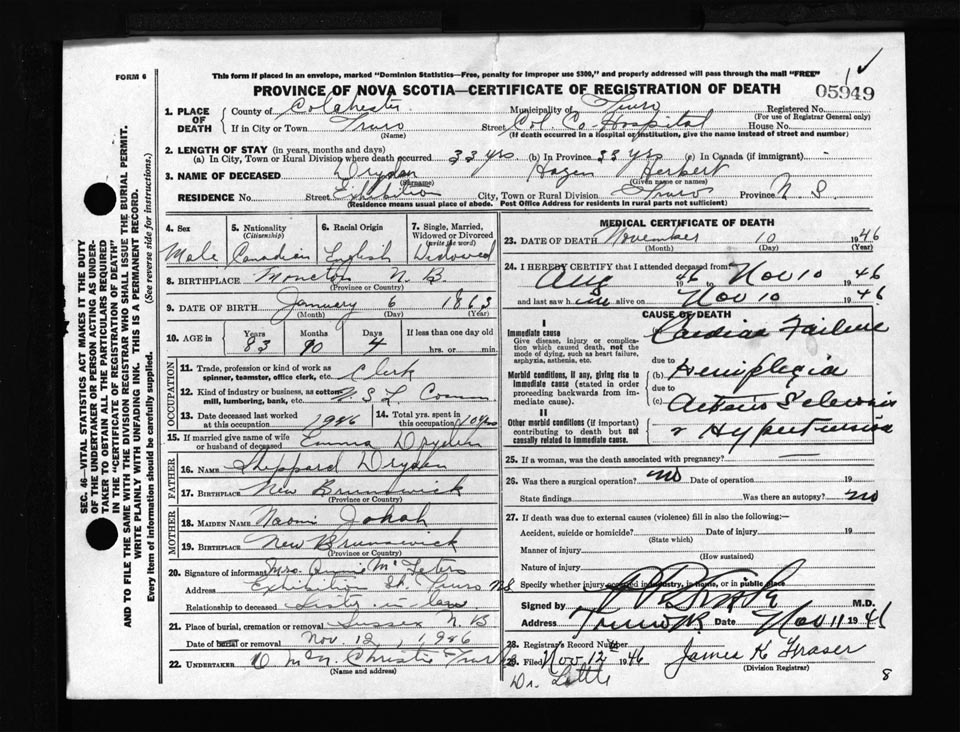 FORM 6
This form if placed in an envelope, marked "Dominion Statistics—Free, penalty for improper use $300," and properly addressed will pass through the mail "FREE"
PROVINCE OF NOVA SCOTIA—CERTIFICATE OF REGISTRATION OF DEATH
05949
1. PLACE OF DEATH County of Colchester Municipality of Truro Registered No.
(For use of Registrar General only)
If in City or Town Truro Street Col. Co. Hospital House No.
(Name) (If death occurred in a hospital or institution, give the name instead of street and number)
2. LENGTH OF STAY (in years, months and days)
(a) In City, Town or Rural Division where death occurred 33 yrs (b) In Province 33 yrs (c) In Canada (if immigrant)
3. NAME OF DECEASED Dryden Hazen Herbert
(Surname) (Given name or names)
RESIDENCE No. Street Exhibition City, Town or Rural Division Truro Province N. S.
(Residence means usual place of abode. Post Office Address for residents in rural parts not sufficient)
4. Sex 5. Nationality (Citizenship) 6. Racial Origin 7. Single, Married, Widowed or Divorced (write the word)
Male Canadian English Widowed
8. BIRTHPLACE Moncton N. B.
(Province or Country)
9. DATE OF BIRTH January 6 1863
(Month) (Day) (Year)
10. AGE in Years Months Days If less than one day old
83 10 4 hrs. or min.
OCCUPATION
11. Trade, profession or kind of work as spinner, teamster, office clerk, etc. Clerk
12. Kind of industry or business, as cotton mill, lumbering, bank, etc. N.S.L. Comm
13. Date deceased last worked at this occupation 1946 14. Total yrs. spent in this occupation 10 yrs
15. If married give name of wife or husband of deceased Emma Dryden
FATHER
16. NAME Sheppard Dryden
17. BIRTHPLACE New Brunswick
(Province or Country)
MOTHER
18. MAIDEN NAME Naomi
19. BIRTHPLACE New Brunswick
(Province or Country)
20. Signature of informant Mrs. Annie McFeters
Address Exhibition St Truro NS
Relationship to deceased Sister-in-law
21. Place of burial, cremation or removal Sussex N. B
Date of burial or removal Nov. 12, 1946
22. UNDERTAKER Christie Truro
(Name and address)
MEDICAL CERTIFICATE OF DEATH
23. DATE OF DEATH November 10 1946
(Month) (Day) (Year)
24. I HEREBY CERTIFY that I attended deceased from
Aug 1946 to Nov 10 1946
and last saw h im alive on Nov 10 1946
CAUSE OF DEATH
I
Immediate cause Cardiac Failure
Give disease, injury or complication which caused death, not the mode of dying, such as heart failure, asphyxia, asthenia, etc.
due to
Morbid conditions, if any, giving rise to immediate cause (stated in order proceeding backwards from immediate cause). (b) Hemiplegia
due to
(c) Arterio Sclerosis
II
Other morbid conditions (if important) contributing to death but not causally related to immediate cause. & Hypertension
25. If a woman, was the death associated with pregnancy? —
26. Was there a surgical operation? no Date of operation 19
State findings Was there an autopsy? no
27. If death was due to external causes (violence) fill in also the following:—
Accident, suicide or homicide? Date of injury 19
(State which)
Manner of injury
(How sustained)
Nature of injury
Specify whether injury occurred in industry, in home, or in public place
Signed by M.D.
Address Truro Date Nov 11 1946
28. Registrar's Record Number
29. Filed Nov 12 1946 James K Fraser
(Division Registrar)
Dr. Little
8
SEC. 46—VITAL STATISTICS ACT MAKES IT THE DUTY
OF THE UNDERTAKER OR PERSON ACTING AS UNDERTAKER TO OBTAIN ALL THE PARTICULARS REQUIRED
IN THE "CERTIFICATE OF REGISTRATION OF DEATH"
AND TO FILE THE SAME WITH THE DIVISION REGISTRAR WHO SHALL ISSUE THE BURIAL PERMIT.
WRITE PLAINLY WITH UNFADING INK. THIS IS A PERMANENT RECORD.
Every item of information should be carefully supplied. (See reverse side for instructions.)